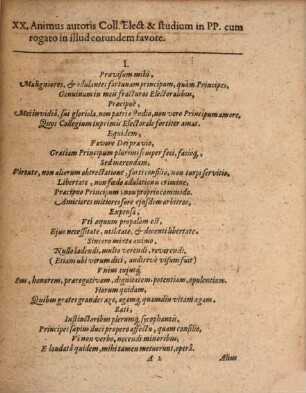 XX. Animus autoris Coll. Elect & studium in PP. cum
rogato in illud eorundem favore.
I.
Prævisum mihi,
Maligniores, & adulantes fortunam principum, quàm Principes,
Genuinum in meis fracturos Electoralibus,
Præcipuè,
Mei invidiâ, sui gloriolâ, non patriæ studio, non vero Principum amore,
Quos Collegium inprimis Electorale fortiter amat.
Equidem,
Favore Dei prævio,
Gratiam Principum plurimi semper feci, facioq,
Sed merendam,
Virtute, non aliorum obtrectatione, forti consilio, non turpi servitio,
Libertate, non fœdo adulationis crimine,
Præcipuo Principum, non proprio commodo.
Amiciores mitiores fore ejusdem arbitros,
Expensâ,
Uti æquum propalam est,
Ejus necessitate, utilitate, & decenti libertate.
Sincero mixta animo,
Nullo lædendi, multo verendi, reverendi,
(Etiam ubi verum dici, audirive visum fuit)
Unius cujusq.
Suo, honorem, prærogativam, dignitatem, potentiam, opulentiam.
Horum quidam,
Quibus grates grandes ago, agamq, quamdiu vitam agam,
Rati,
Instinctoribus plerumq sycophantis,
Principes sapius duci propero affectu, quam consilio,
Vi non verbo, nocendi minoribus,
E laudatâ quidem, mihi tamen metuerunt, operâ.
A 2 Alius